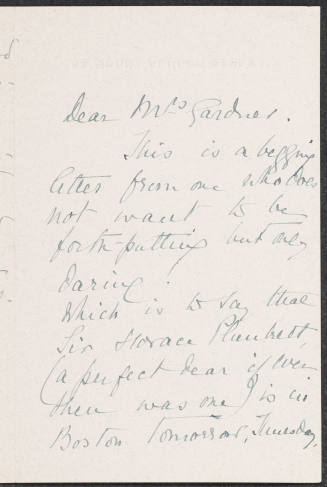 Dear Mrs Gardner.
This is a begging
letter from one who does
not want to be
forth-putting but only
daring!
Which is to say that
Sir Horace Plunkett,
(a perfect dear if ever
there was one) is in
Boston tomorrow, Thursday,